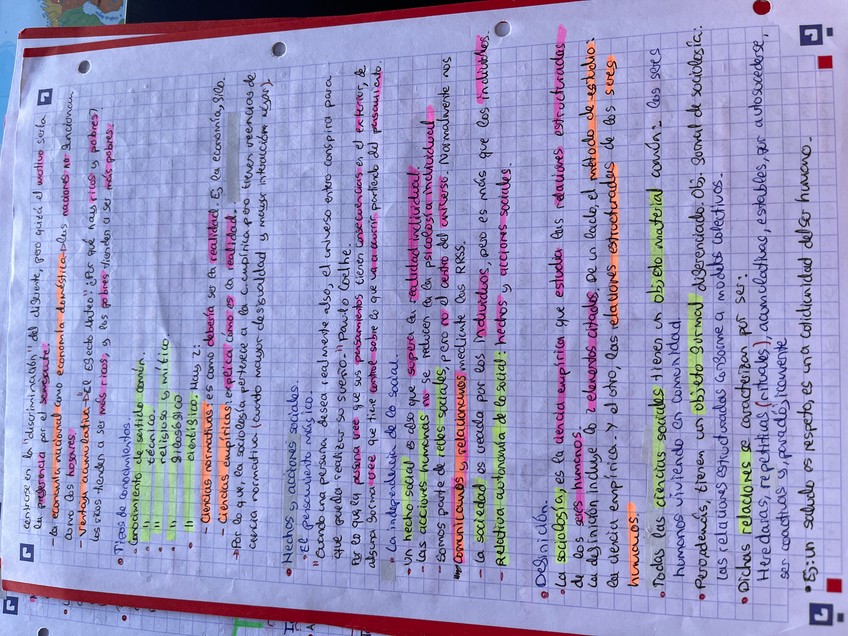 centrarse en la "discriminación" del diferente, pero quizá el motivo sería
la preferencia por el semejante.
- La economía nacional como economía doméstica → las naciones no funcionan
como los hogares.
- Ventaja acumulativa → "El efecto Mateo" ¿Por qué hay ricos y pobres?
Los ricos tienden a ser más ricos, y los pobres tienden a ser más pobres.
• Tipos de conocimientos.
- Conocimiento de sentido común.
- " técnico
- " religioso y mítico.
- " filosófico
- " científico, Hay 2:
- Ciencias normativas: es como debería ser la realidad. Ej: la economía, filo.
- Ciencias empíricas: explica como es la realidad.
→ Por lo que, la sociología pertenece a la c. empírica pero tienen creencias de
ciencia normativa (cuanto mayor desigualdad y mayor interacción mejor).
• Hechos y acciones sociales.
• El pensamiento mágico.
"Cuando una persona desea realmente algo, el universo entero conspira para
que pueda realizar su sueño" Paulo Coelho.
Por lo que la persona cree que sus pensamientos tienen consecuencias en el exterior, de
alguna forma cree que tiene control sobre lo que va a ocurrir partiendo del pensamiento
• La independencia de lo social.
- Un hecho social es algo que supera la realidad individual.
- Las acciones humanas no se reducen a la psicología individual
- Somos parte de redes sociales, pero no el centro del universo. Normalmente nos
comunicamos y relacionamos mediante las RRSS.
- La sociedad es creada por los individuos, pero es más que los individuos.
- Relativa autonomía de lo social: hechos y acciones sociales.
• Definición.
• La sociología, es la ciencia empírica que estudia las relaciones estructuradas
de los seres humanos.
La definición incluye los 2 elementos citados. De un lado, el método de estudio:
la ciencia empírica. Y el otro, las relaciones estructuradas de los seres
humanos.
• Todas las ciencias sociales tienen un objeto material común: los seres
humanos viviendo en comunidad.
• Pero, además, tienen un objeto formal diferenciado. Obj. formal de sociología:
las relaciones estructuradas conforme a modelos colectivos.
• Dichas relaciones se caracterizan por ser:
Heredarias, repetitivas (rituales), acumulativas, estables, por autosucederse,
ser coactivas y, paradójicamente
* Ej: un saludo es respeto, es una cotidianidad del ser humano.